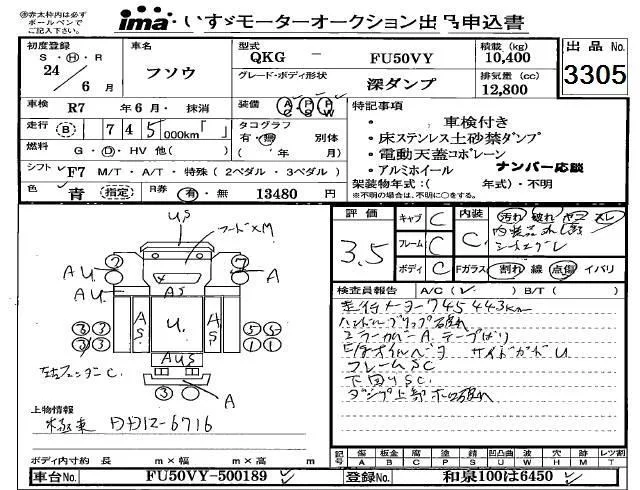 ※赤太枠内は必ず
ボールペンで
ご記入下さい。
ima いすゞモーターオークション出品申込書
初度登録
S・H・R
24 / 6 月
車名
フソウ
型式
QKG － FU50VY
グレード・ボディ形状
深ダンプ
積載 (kg)
10,400
排気量 (cc)
12,800
出品 No.
3305
車検 R7 年 6 月・ 抹消
走行 B 7 4 5 ,000km「 」
燃料 G・D・HV 他( )
シフト F7 M/T・A/T・特殊(2ペダル・3ペダル)
色 青 指定 R券 有・無 13480 円
装備 AC PS PW
タコグラフ
有・無 別体
( 年 月)
特記事項
・ 車検付き
・床ステンレス土砂禁ダンプ
・電動天蓋コボレーン
・アルミホイール ナンバー応談
架装物年式:( 年式)・不明
※不明の場合は、不明に○をする。
評価
3.5
キャブ C
フレーム C
ボディ C
内装 C
汚れ 破れ ヤニ スレ
Fガラス 割れ 線 点傷 イバリ
検査員報告 A/C( ✓ ) B/T( )
走行メーター745443km
ハンドルグリップ破れ
ミラーカバーA テープばり
サイドガードU
フレームSC
下回りSC
US
フードXM
AU
A
AU
AS
AS
U.
AS
AUS
A
7 2
3 3
3 3
5 5
1 1
3
左フェンダーC.
上物情報
極東 DD12-6716
ボディ内寸約 長 m×幅 m×高 m
記号 傷 A 板金 B 腐 C 塗 P 錆 S 凹凸曲 U 波 W 穴 H 無 M レツ割 T
車台No. FU50VY-500189
登録No. 和泉100は6450